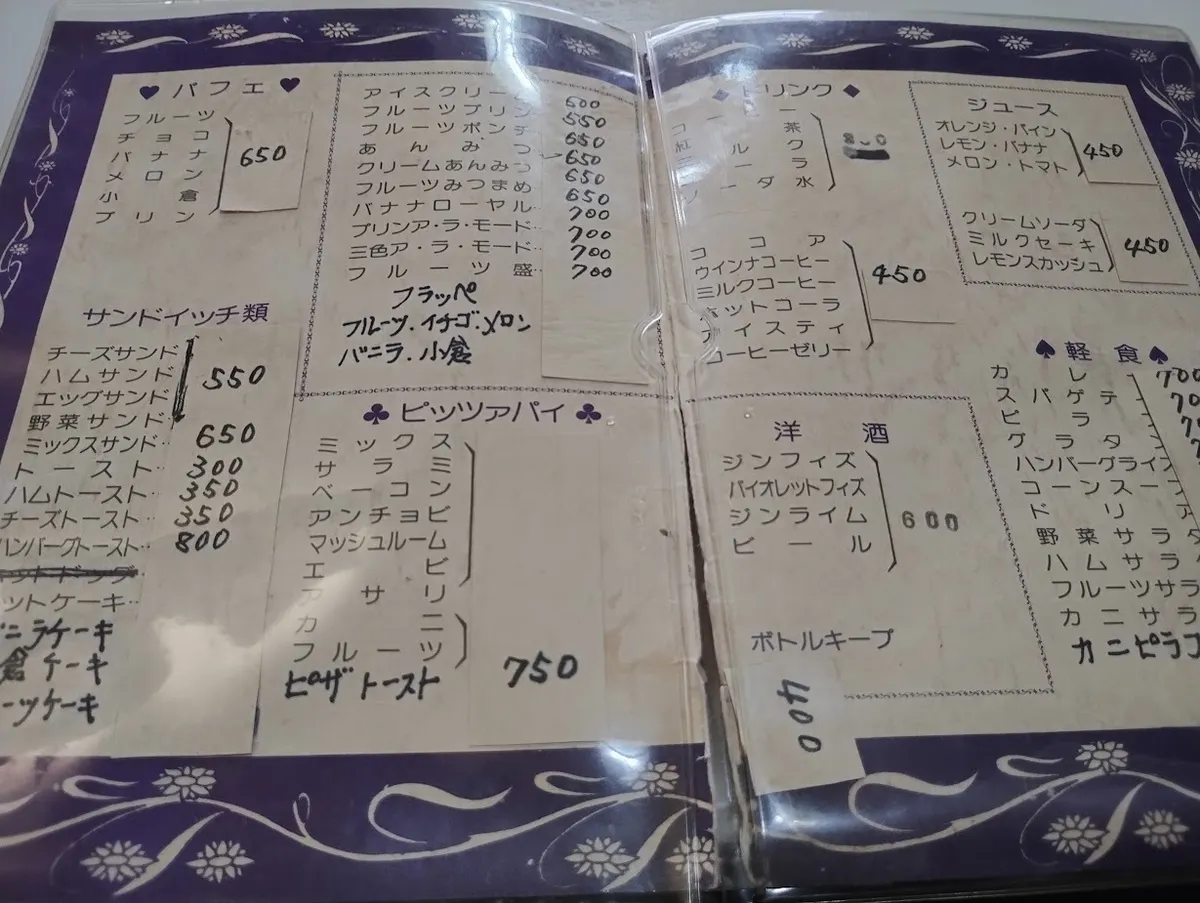 ♥ パフェ ♥
フルーツ
チョコ
バナナ
メロン
小倉
プリン
650
サンドイッチ類
チーズサンド
ハムサンド
エッグサンド
550
野菜サンド
ミックスサンド 650
トースト 300
ハムトースト 350
チーズトースト 350
ハンバーグトースト 800
ットドッグ
ットケーキ
ニラケーキ
倉ケーキ
ーツケーキ
アイスクリー 600
フルーツプリン 550
フルーツポンチ 650
あんみつ 650
クリームあんみつ 650
フルーツみつまめ 650
バナナローヤル 700
プリンア・ラ・モード 700
三色ア・ラ・モード 700
フルーツ盛 700
フラッペ
フルーツ.イチゴ.メロン
バニラ.小倉
♣ ピッツァパイ ♣
ミックス
サラミ
ベーコン
アンチョビ
マッシュルーム
エビ
アサリ
カニ
フルーツ
ピザトースト
750
◆ ドリンク ◆
コーヒー
紅茶
ミルク
コーラ
ソーダ水
ココア
ウインナコーヒー
ミルクコーヒー
ホットコーラ
アイスティ
コーヒーゼリー
450
ジュース
オレンジ・パイン
レモン・バナナ
メロン・トマト
450
クリームソーダ
ミルクセーキ
レモンスカッシュ
450
洋酒
ジンフィズ
バイオレットフィズ
ジンライム
ビール
600
ボトルキープ
400
♠ 軽食 ♠
カレ 700
スパゲテ 70
ピラ
グラタン
ハンバーグライス
コーンスープ
ドリア
野菜サラダ
ハムサラダ
フルーツサラ
カニサラ
カニピラフ